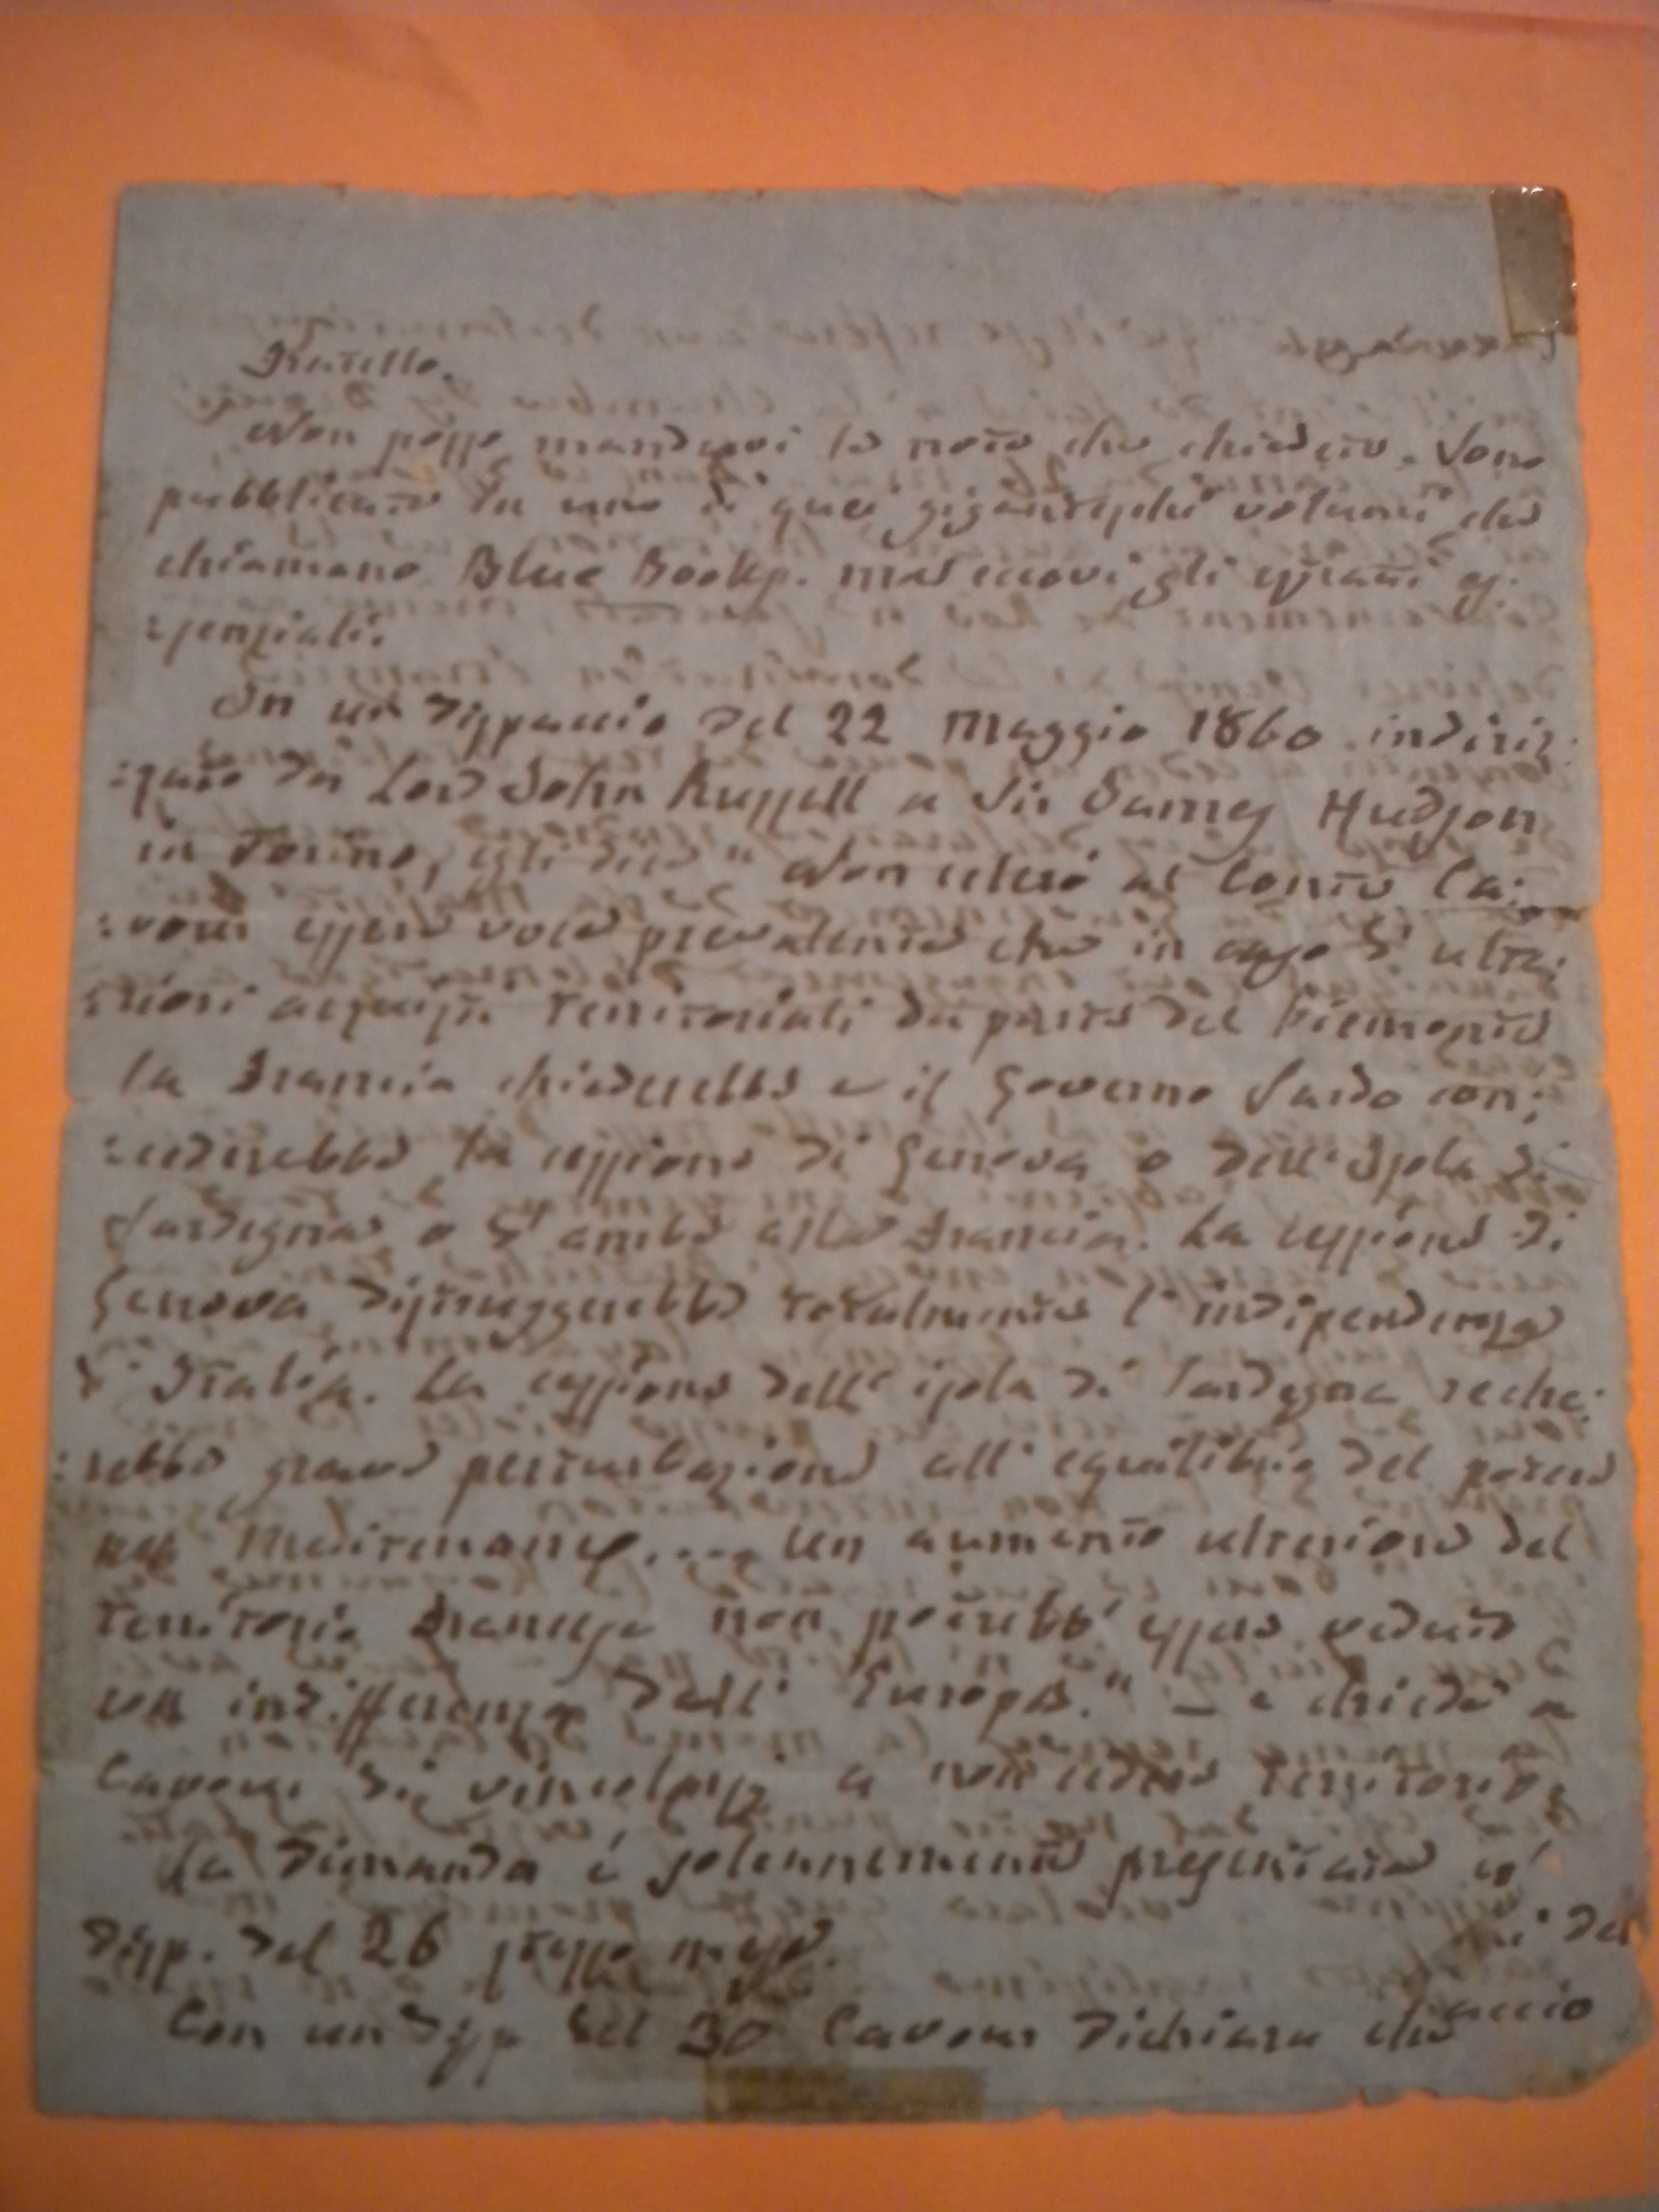 Fratello.
Non posso mandarvi le note che chiedete. Sono
pubblicate in uno di quei giganteschi volumi che
chiamano Blue Books. ma eccovi gli estratti es:
:senziali.
In un dispaccio del 22 Maggio 1860 indiriz:
:zato da Lord John Russell a Sir James Hudson
in Torino, egli dice " Non celerò al Conte Ca:
:vour essere voce prevalente che in caso d' ulte:
:riori acquisti territoriali da parte del Piemonte
la Francia chiederebbe e il Governo Sardo con:
:cederebbe la cessione di Genova o dell' Isola di
Sardegna o d' ambe alla Francia. La cessione di
Genova distruggerebbe totalmente l' indipendenza
d' Italia. La cessione dell' isola di Sardegna reche:
:rebbe grave perturbazione all' equilibrio del potere
nel Mediterraneo.... Un aumento ulteriore del
territorio Francese non potrebb' essere veduto
con indifferenza dall' Europa." — e chiede a
Cavour di vincolarsi a non cedere territorio.
La dimanda è solennemente presentata in
disp. del 26 stesso mese.
Con un disp del 30 Cavour dichiara che